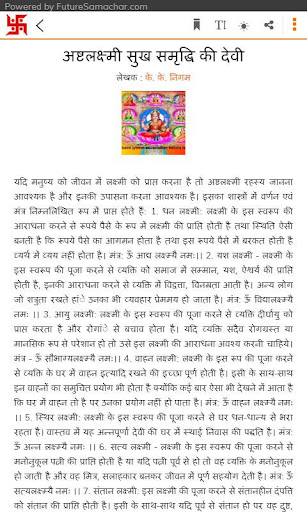 Powered by FutureSamachar.com
TI
अष्टलक्ष्मी सुख समृद्धि की देवी
लेखक : के. के. निगम
यदि मनुष्य को जीवन में लक्ष्मी को प्राप्त करना है तो अष्टलक्ष्मी रहस्य जानना
आवश्यक है और इनकी उपासना करना आवश्यक है। इसका शास्त्रों में वर्णन एवं
मंत्र निम्नलिखित रूप में प्राप्त होते हैं: 1. धन लक्ष्मी: लक्ष्मी के इस स्वरूप की
आराधना करने से रूपये पैसे के रूप में लक्ष्मी की प्राप्ति होती है तथा स्थिति ऐसी
बनती है कि रूपये पैसे का आगमन होता है तथा इस रूपये पैसे में बरकत होती है
व्यर्थ में व्यय नहीं होता है। मंत्र: ऊँ आद्य लक्ष्म्यै नमः।। 2. यश लक्ष्मी - लक्ष्मी के
इस स्वरूप की पूजा करने से व्यक्ति को समाज में सम्मान, यश, ऐश्वर्य की प्राप्ति
होती है, इनकी आराधना करने से व्यक्ति में विद्वत्ता, विनम्रता आती है। अन्य लोग
जो शत्रुता रखते हांे उनका भी व्यवहार प्रेममय हो जाता है। मंत्र: ऊँ विद्यालक्ष्म्यै
नमः ।। 3. आयु लक्ष्मी: लक्ष्मी के इस स्वरूप की पूजा करने से व्यक्ति दीर्घायु को
प्राप्त करता है और रोगांे से बचाव होता है। यदि व्यक्ति सदैव रोगग्रस्त या
मानसिक रूप से परेशान हो तो उसे इस लक्ष्मी की आराधना अवश्य करनी चाहिये।
मंत्र - ऊँ सौभाग्यलक्ष्म्यै नमः।। 4. वाहन लक्ष्मी: लक्ष्मी के इस स्वरूप की पूजा करने
से व्यक्ति के घर में वाहन इत्यादि रखने की इच्छा पूर्ण होती है। इसी के साथ-साथ
इन वाहनों का समुचित प्रयोग भी होता है क्योंकि कई बार ऐसा भी देखने में आता है
कि घर में वाहन तो है पर उनका प्रयोग नहीं हो पाता है। मंत्र: ऊँ वाहन लक्ष्म्यै नमः
।। 5. स्थिर लक्ष्मी: लक्ष्मी के इस स्वरूप की पूजा करने से घर धन-धान्य से भरा
रहता है। वास्तव में यह अन्नपूर्णा देवी की घर में स्थाई निवास की पद्धति है। मंत्र:
ऊँ अन्न लक्ष्म्यै नमः।। 6. सत्य लक्ष्मी - लक्ष्मी के इस स्वरूप की पूजा करने से
मनोनुकूल पत्नी की प्राप्ति होती है या यदि पत्नी पूर्व से हो तो वह व्यक्ति के मनोनुकूल
हो जाती है और वह मित्र, सलाहकार बनकर जीवन में पूर्ण सहयोग देती है। मंत्र: ऊँ
सत्यलक्ष्म्यै नमः ।। 7. संतान लक्ष्मी: इस लक्ष्मी की पूजा करने से संतानहीन दंपत्ति
को संतान प्राप्त होती है। इसी के साथ-साथ यदि पूर्व से संतान हो पर वह दुष्ट,